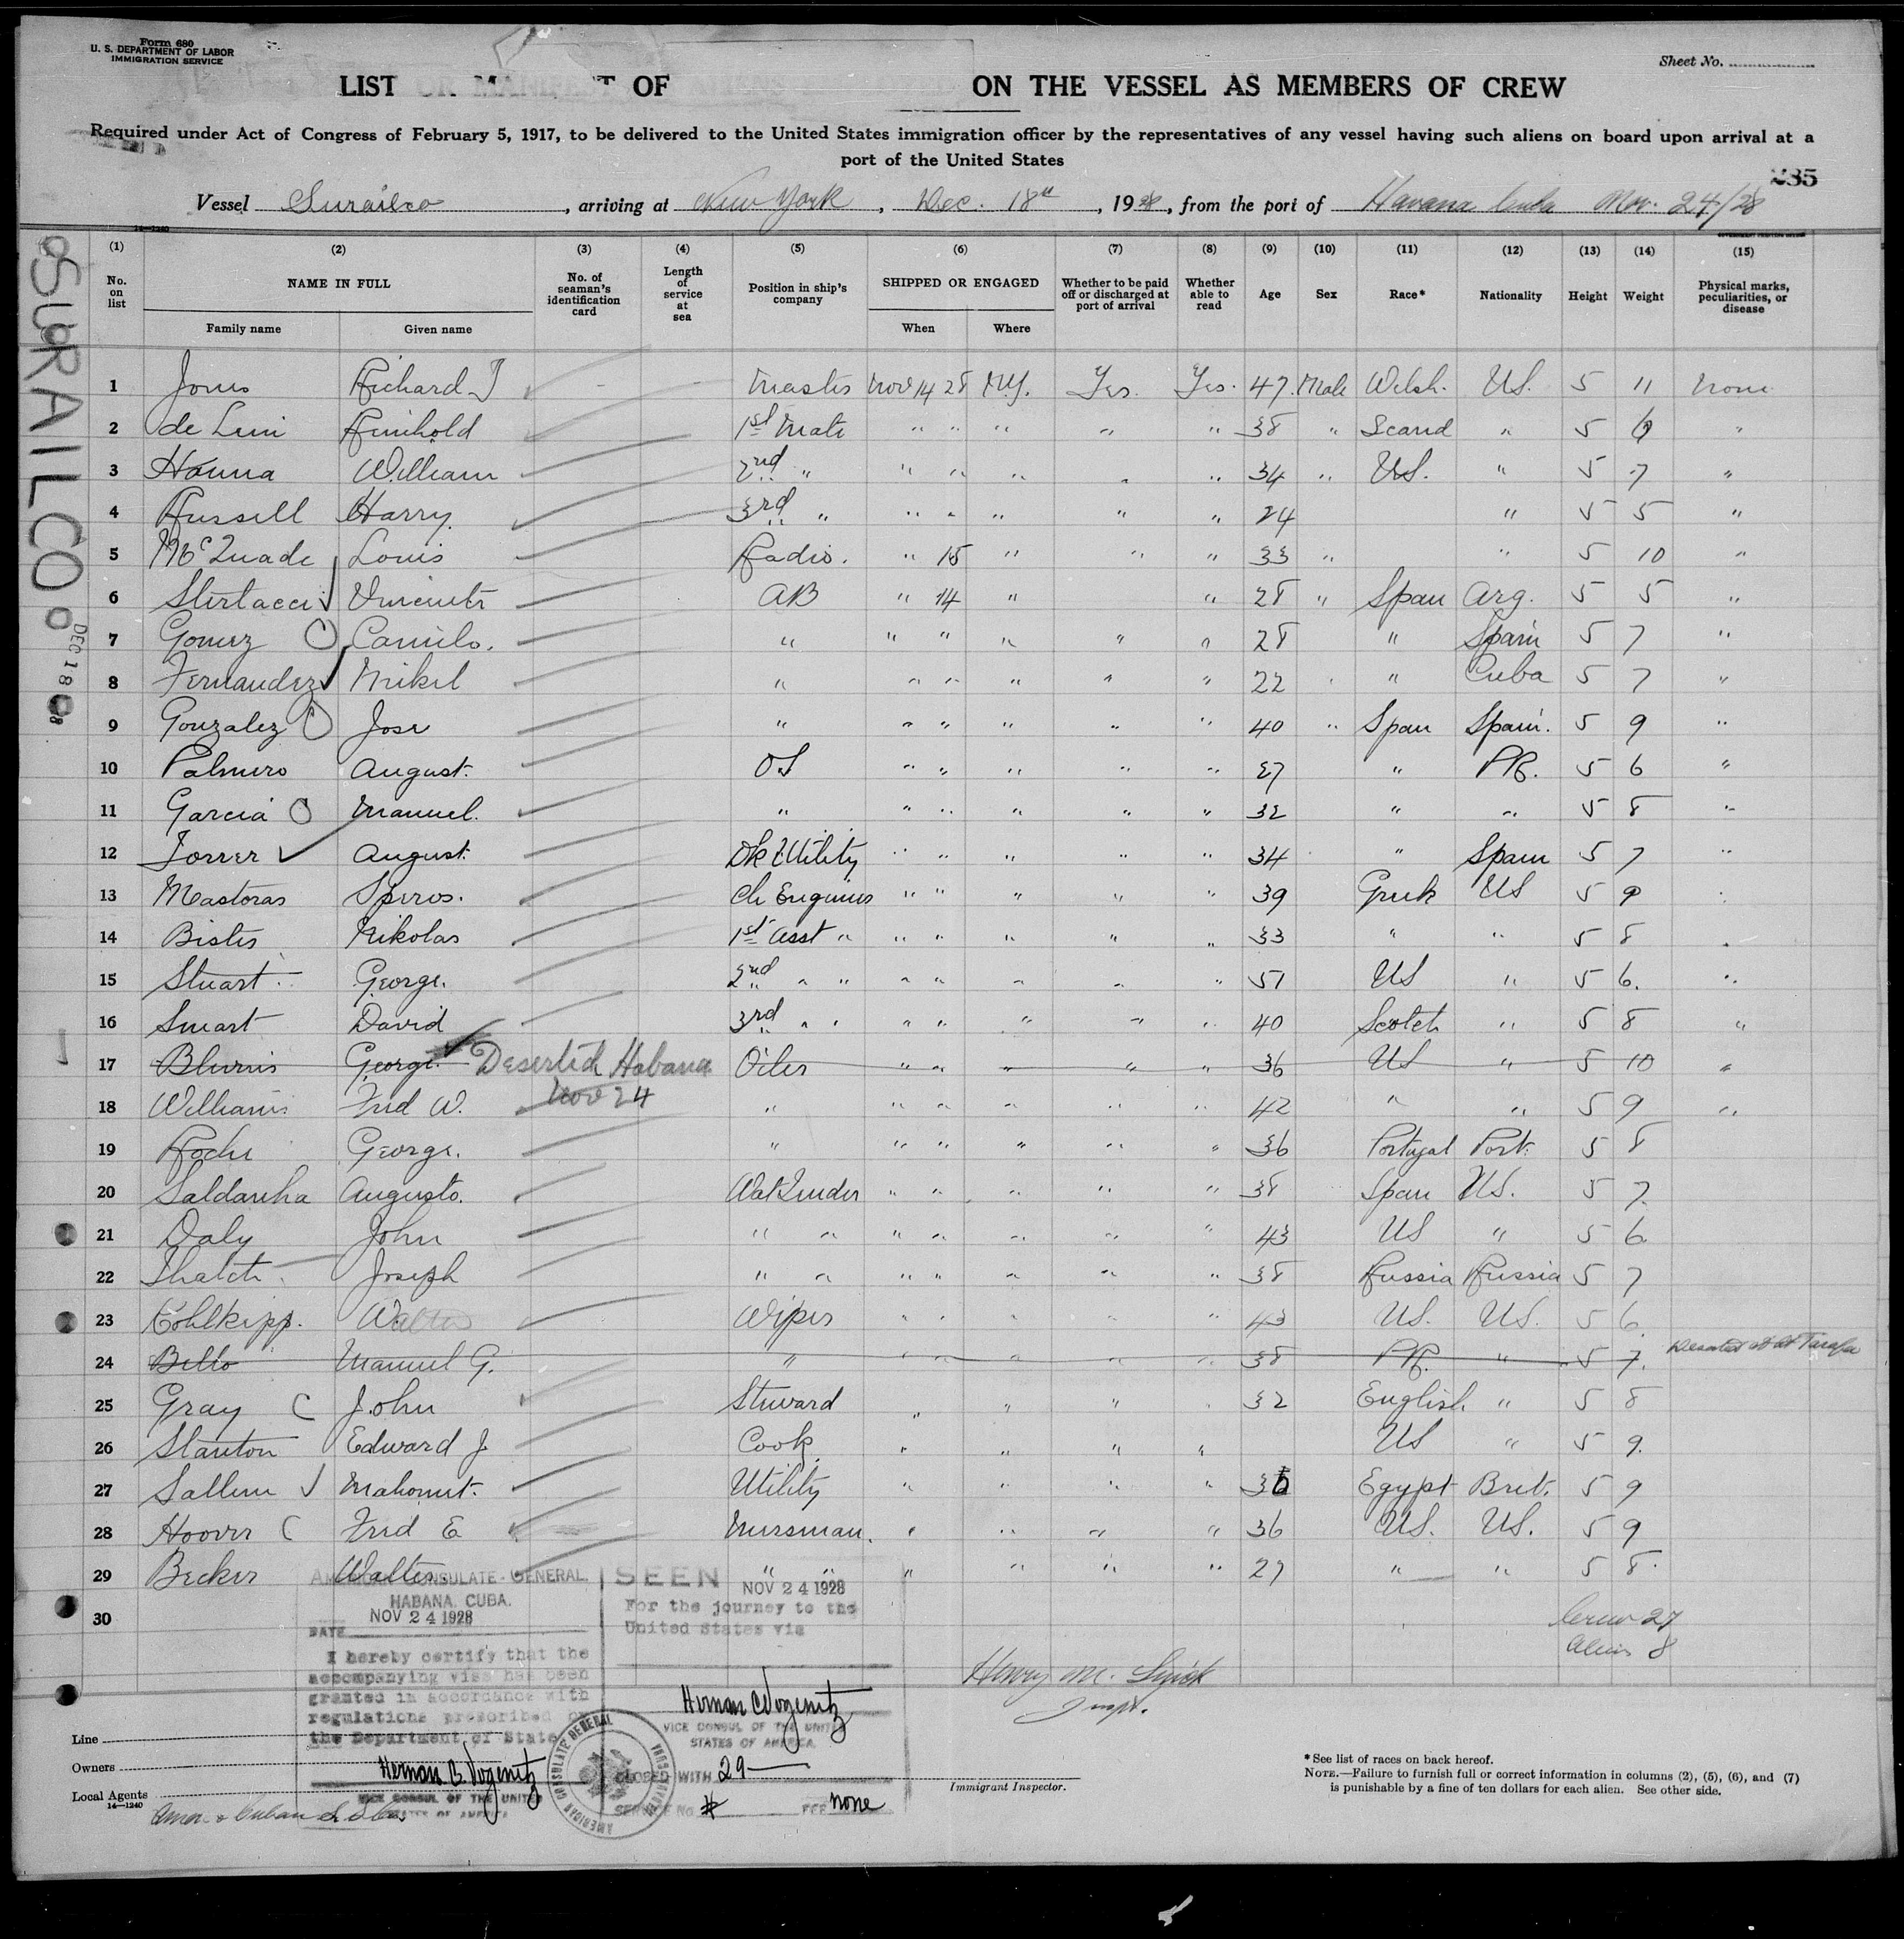 Form 680
U. S. DEPARTMENT OF LABOR
IMMIGRATION SERVICE
Sheet No.
LIST OR MANIFEST OF ALIENS ON THE VESSEL AS MEMBERS OF CREW
Required under Act of Congress of February 5, 1917, to be delivered to the United States immigration officer by the representatives of any vessel having such aliens on board upon arrival at a
port of the United States
235
Vessel Surailco, arriving at New York, Dec. 18th, 1928, from the port of Havana Cuba Nov. 24/28
SURAILCO
DEC 18
(1) (2) (3) (4) (5) (6) (7) (8) (9) (10) (11) (12) (13) (14) (15)
No. on list NAME IN FULL No. of seaman's identification card Length of service at sea Position in ship's company SHIPPED OR ENGAGED Whether to be paid off or discharged at port of arrival Whether able to read Age Sex Race* Nationality Height Weight Physical marks, peculiarities, or disease
Family name Given name When Where
1 Jones Richard J - - Master Nov 14 28 N.Y. Yes. Yes. 47 Male Welsh. US. 5 11 None
2 de Luii Reinhold 1st Mate " " " " " 38 " Scand " 5 6 "
3 Hanna William 2nd " " " " " " 34 " US. " 5 7 "
4 Russell Harry. 3rd " " " " " " 24 " 5 5 "
5 McQuade Louis Radio. " 15 " " " 33 " " 5 10 "
6 Stertacci AB " 14 " " 28 " Span Arg. 5 5 "
7 Gomez Camilo. " " " " " " 28 " Spain 5 7 "
8 Fernandez Mikel " " " " " " 22 " Cuba 5 7 "
9 Gonzalez Jose " " " " " " 40 " Span Spain. 5 9 "
10 Palmero August. OS " " " " " 27 " PR. 5 6 "
11 Garcia Manuel. " " " " " " 32 " " 5 8 "
12 Torrer August. Dk Utility " " " " " 34 " Spain 5 7 "
13 Mastoras Speros. Ch Engineer " " " " " 39 Greek US 5 9
14 Bistis Nikolas 1st Asst " " " " " " 33 " " 5 8
15 Stuart George. 2nd " " " " " " " 51 US " 5 6. "
16 Smart David 3rd " " " " " " " 40 Scotch " 5 8 "
17 George. Deserted Habana Oiler " " " " " 36 US " 5 10 "
Nov 24
18 Williams Fred W. " " " " " " 42 " " 5 9 "
19 Roche George. " " " " " " 36 Portugal Port. 5 8
20 Saldanha Augusto. Wat Tender " " " " " 38 Span US. 5 7.
21 Daly John " " " " " " " 43 US " 5 6
22 Joseph " " " " " " " 38 Russia Russia 5 7
23 Kohlkipp. Walter Wiper " " " " " 43 US. US. 5 6
24 Bello Manuel G. " " " " " " 38 PR. " 5 7. Deserted
25 Gray John Steward " " " " 32 English " 5 8
26 Stanton Edward J Cook " " " " US " 5 9.
27 Sallem Mahomet. Utility " " " " 36 Egypt Brit. 5 9
28 Hoover Fred E Messman. " " " " 36 US. US. 5 9
29 Becker Walter " " " " " " 27 " " 5 8.
30
Crew 27
Aliens 8
AMERICAN CONSULATE-GENERAL.
HABANA, CUBA.
NOV 24 1928
DATE
I hereby certify that the
accompanying visa has been
granted in accordance with
regulations prescribed by
the Department of State
VICE CONSUL OF THE UNITED
STATES OF AMERICA
SEEN NOV 24 1928
For the journey to the
United States via
VICE CONSUL OF THE UNITED
STATES OF AMERICA
CLOSED WITH 29
SERVICE No. FEE none
AMERICAN CONSULATE GENERAL
Henry M.
Insp.
Immigrant Inspector.
Line
Owners
Local Agents
14—1240
Amer. & Cuban S. S. Co.
*See list of races on back hereof.
NOTE.—Failure to furnish full or correct information in columns (2), (5), (6), and (7)
is punishable by a fine of ten dollars for each alien. See other side.